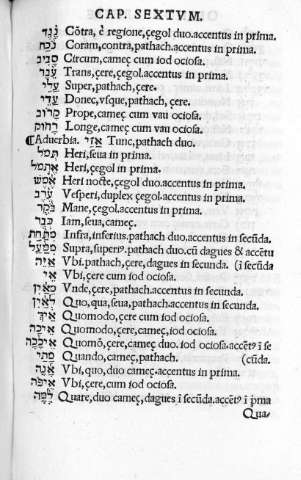 CAP. SEXTVM.
נֶגֶד Cõtra, è regione, çegol duo. accentus in prima.
נֹכַח Coram, contra, pathach. accentus in prima.
סָבִיב Circum, cameç cum iod ociosa.
Trans, çere, çegol. accentus in prima.
עֲלֵי Super, pathach, çere.
עֲדֵי Donec, vsque, pathach, çere.
קָרוֹב Prope, cameç cum vau ociosa.
רָחוֹק Longe, cameç cum vau ociosa.
¶Aduerbia. אֲזַי Tunc, pathach duo.
תְּמֹל Heri, seua in prima.
אֶתְמֹל Heri, çegol in prima.
אֶמֶשׁ Heri nocte, çegol duo. accentus in prima.
עֶרֶב Vesperi, duplex çegol. accentus in prima.
בֹּקֶר Mane, çegol. accentus in prima.
כְּבָר Iam, seua, cameç.
מִתַּחַת Infra, inferius. pathach duo. accentus in secũda.
מִמַּעַל Supra, superiꝰ. pathach duo. cũ dagues & accẽtu
אַיֵּה Vbi, pathach, çere, dagues in secunda. (ĩ secũda
אֵי Vbi, çere cum iod ociosa.
מֵאַיִן Vnde, çere, pathach. accentus in secunda.
לְאַיִן Quo, qua, seua, pathach. accentus in secunda.
אֵיךְ Quomodo, çere cum iod ociosa.
אֵיכָה Quomodo, çere, cameç, iod ociosa.
אֵיכָכָה Quomõ, çere, cameç duo. iod ociosa. accẽtꝰ ĩ se
מָתַי Quando, cameç, pathach. (cũda.
אָנָה Vbi, quo, duo cameç. accentus in prima.
אֵיפֹה Vbi, çere cum iod ociosa.
לָמָּה Quare, duo cameç, dagues ĩ secũda. accẽtꝰ ĩ p̃ma
Qua-